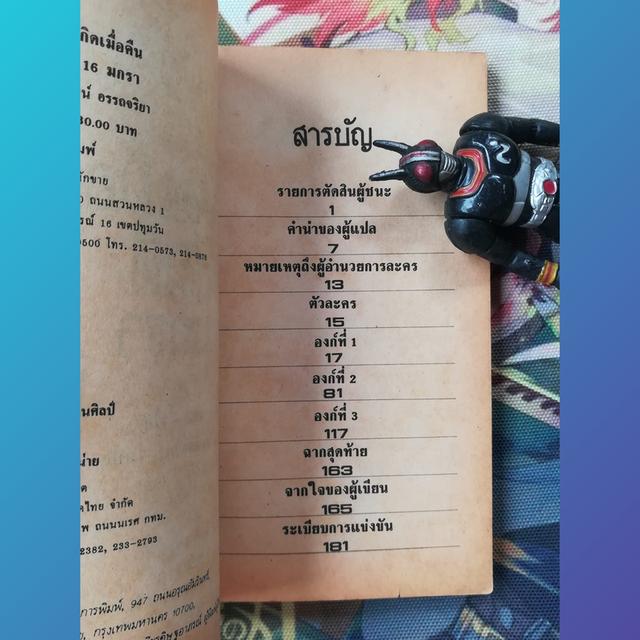 กิดเมื่อคืน
16 มกรา
น์ อรรถจริยา
30.00 บาท
มพ์
ักขาย
ถนนสวนหลวง 1
รณ์ 16 เขตปทุมวัน
0500 โทร. 214-0573, 214-0878
นศิลป์
น่าย
ด
ดไทย จำกัด
พ ถนนนเรศ กทม.
2382, 233-2793
การพิมพ์, 947 ถนนอรุณอมรินทร์,
กรุงเทพมหานคร 10700,
สารบัญ
รายการตัดสินผู้ชนะ
1
คำนำของผู้แปล
7
หมายเหตุถึงผู้อำนวยการละคร
13
ตัวละคร
15
องก์ที่ 1
17
องก์ที่ 2
81
องก์ที่ 3
117
ฉากสุดท้าย
163
จากใจของผู้เขียน
165
ระเบียบการแข่งขัน
181